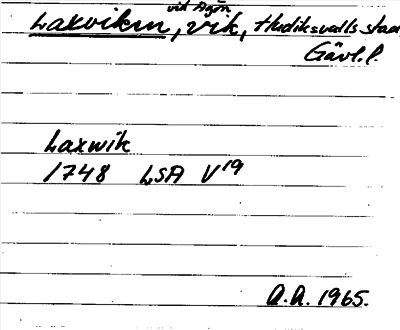 vid Agön
Laxviken, vik, Hudiksvalls stad
Gävl. l.
Laxwik
1748 LSA V19
A.A. 1965.